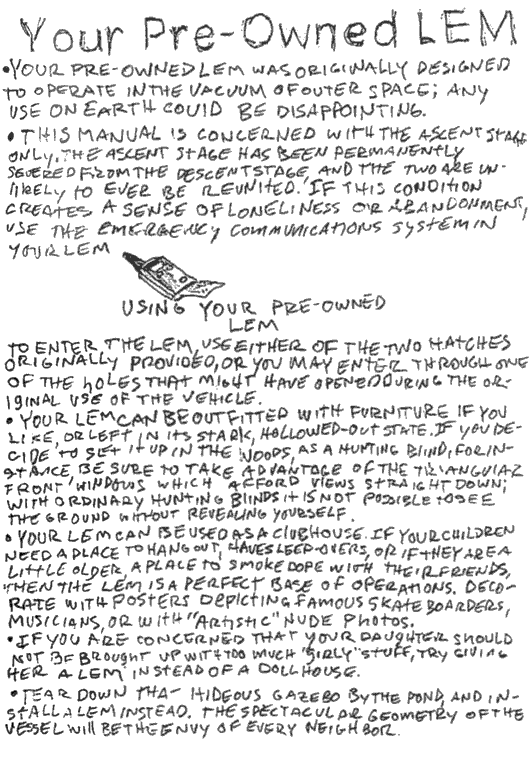 Your Pre-Owned LEM
•YOUR PRE-OWNED LEM WAS ORIGINALLY DESIGNED
TO OPERATE IN THE VACUUM OF OUTER SPACE; ANY
USE ON EARTH COULD BE DISAPPOINTING.
• THIS MANUAL IS CONCERNED WITH THE ASCENT STAGE
ONLY. THE ASCENT STAGE HAS BEEN PERMANENTLY
SEVERED FROM THE DESCENT STAGE, AND THE TWO ARE UN-
LIKELY TO EVER BE REUNITED. IF THIS CONDITION
CREATES A SENSE OF LONELINESS OR ABANDONMENT,
USE THE EMERGENCY COMMUNICATIONS SYSTEM IN
YOUR LEM
USING YOUR PRE-OWNED
LEM
TO ENTER THE LEM, USE EITHER OF THE TWO HATCHES
ORIGINALLY PROVIDED, OR YOU MAY ENTER THROUGH ONE
OF THE HOLES THAT MIGHT HAVE OPENED DURING THE OR-
IGINAL USE OF THE VEHICLE.
• YOUR LEM CAN BE OUTFITTED WITH FURNITURE IF YOU
LIKE, OR LEFT IN ITS STARK, HOLLOWED-OUT STATE. IF YOU DE-
CIDE TO SET IT UP IN THE WOODS, AS A HUNTING BLIND, FOR IN-
STANCE BE SURE TO TAKE ADVANTAGE OF THE TRIANGULAR
FRONT WINDOWS WHICH AFFORD VIEWS STRAIGHT DOWN;
WITH ORDINARY HUNTING BLINDS IT IS NOT POSSIBLE TO SEE
THE GROUND WITHOUT REVEALING YOURSELF.
• YOUR LEM CAN BE USED AS A CLUBHOUSE. IF YOUR CHILDREN
NEED A PLACE TO HANG OUT, HAVE SLEEP-OVERS, OR IF THEY ARE A
LITTLE OLDER A PLACE TO SMOKE DOPE WITH THEIR FRIENDS,
THEN THE LEM IS A PERFECT BASE OF OPERATIONS. DECO-
RATE WITH POSTERS DEPICTING FAMOUS SKATEBOARDERS,
MUSICIANS, OR WITH "ARTISTIC" NUDE PHOTOS.
• IF YOU ARE CONCERNED THAT YOUR DAUGHTER SHOULD
NOT BE BROUGHT UP WITH TOO MUCH "GIRLY" STUFF, TRY GIVING
HER A LEM INSTEAD OF A DOLLHOUSE.
• TEAR DOWN THAT HIDEOUS GAZEBO BY THE POND, AND IN-
STALL A LEM INSTEAD. THE SPECTACULAR GEOMETRY OF THE
VESSEL WILL BE THE ENVY OF EVERY NEIGHBOR.